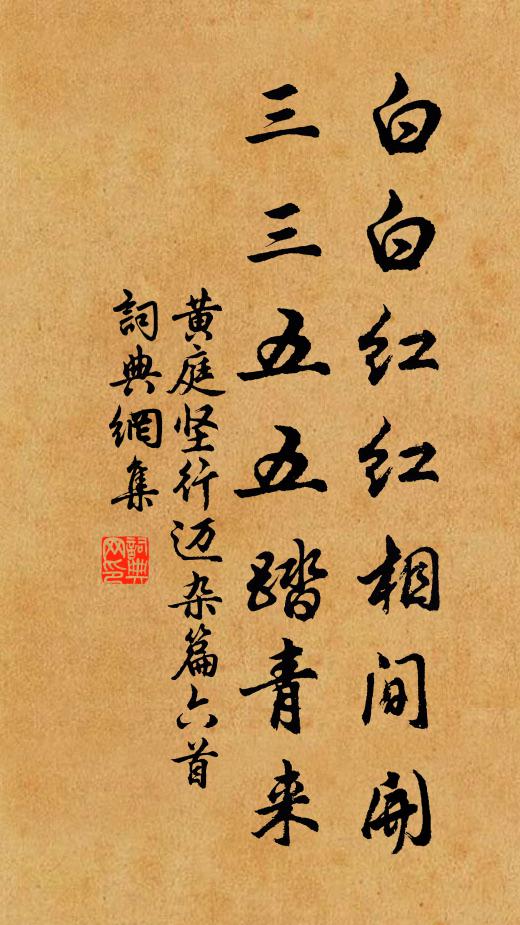 白白红红相间開
三三五五踏青来
黄庭坚行迈杂篇六首
詞典網集
詞典网印